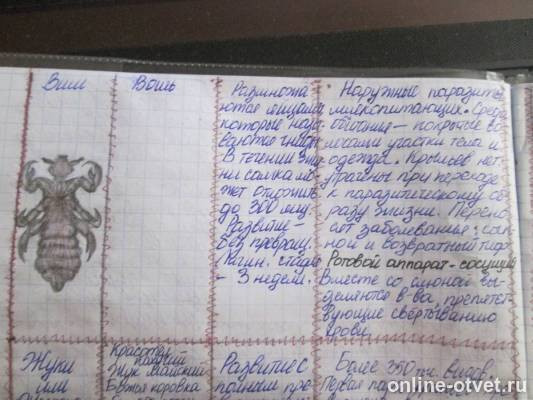 Вши
Вошь
Размножа
ются яйцами
которые назы
ваются гнидам
В течении жиз
ни самка мо-
жет отложить
до 300 яиц.
Развитие -
без превращ.
Личин. стадия
- 3 недели.
Наружные паразиты
млекопитающих. Среда
обитания - покрытые во
лосами участки тела и
одежда. Крыльев нет
утрачены при переходе
к паразитическому об
разу жизни. Перено
сят заболевания: сып
ной и возвратный тиф.
Ротовой аппарат - сосущий
Вместе со слюной вы
деляются в-ва, препятст
вующие свёртыванию
крови.
Жуки
или
Красотел
пахучий
Жук майский
Божья коровка
Развитие с
полным пре
Более 350 тыс. видов.
Первая па
online-otvet.ru